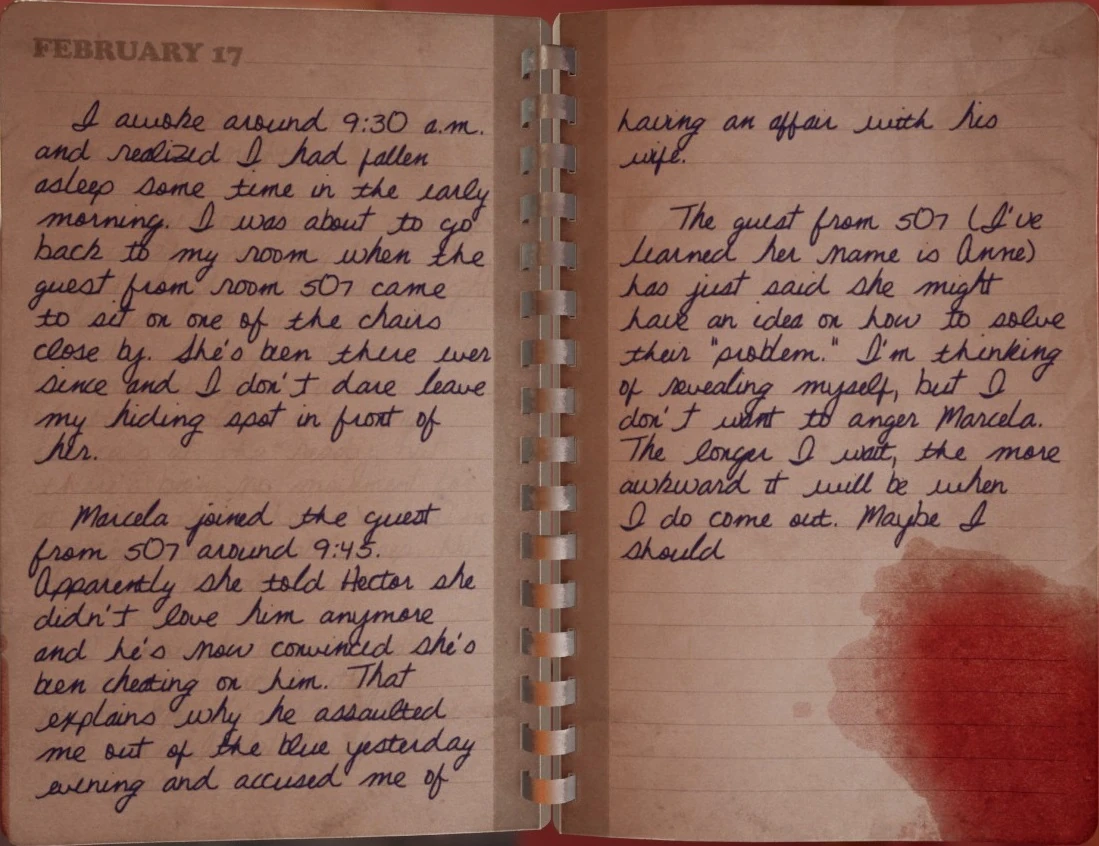 FEBRUARY 17
I awoke around 9:30 a.m.
and realized I had fallen
asleep some time in the early
morning. I was about to go
back to my room when the
guest from room 507 came
to sit on one of the chairs
close by. She's been there ever
since and I don't dare leave
my hiding spot in front of
her.
Marcela joined the guest
from 507 around 9:45.
Apparently she told Hector she
didn't love him anymore
and he's now convinced she's
been cheating on him. That
explains why he assaulted
me out of the blue yesterday
evening and accused me of
having an affair with his
wife.
The guest from 507 (I've
learned her name is Anne)
has just said she might
have an idea on how to solve
their "problem." I'm thinking
of revealing myself, but I
don't want to anger Marcela.
The longer I wait, the more
awkward it will be when
I do come out. Maybe I
should